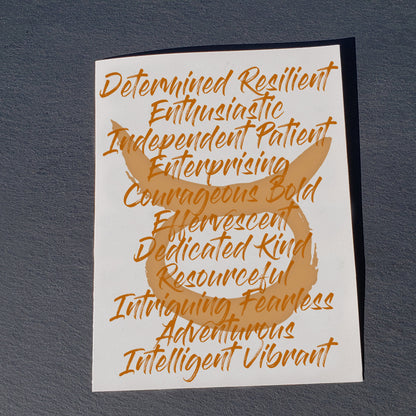 Determined Resilient
Enthusiastic
Independent Patient
Enterprising
Courageous Bold
Effervescent
Dedicated Kind
Resourceful
Intriguing Fearless
Adventurous
Intelligent Vibrant